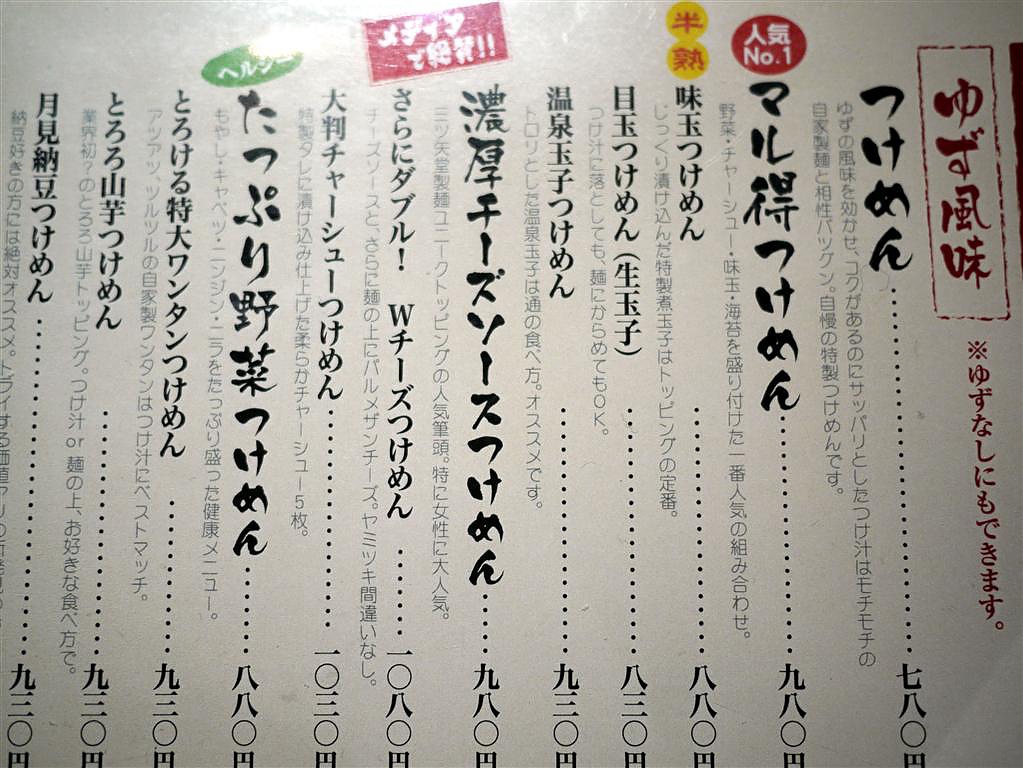 ゆず風味
※ゆずなしにもできます。
つけめん……七八〇円
ゆずの風味を効かせ、コクがあるのにサッパリとしたつけ汁はモチモチの
自家製麺と相性バツグン。自慢の特製つけめんです。
人気
No.1
マル得つけめん……九八〇円
野菜・チャーシュー・味玉・海苔を盛り付けた一番人気の組み合わせ。
半熟
味玉つけめん……八八〇円
じっくり漬け込んだ特製煮玉子はトッピングの定番。
目玉つけめん(生玉子)……八三〇円
つけ汁に落としても、麺にからめてもOK。
温泉玉子つけめん……九三〇円
トロリとした温泉玉子は通の食べ方。オススメです。
メディアで絶賛!!
濃厚チーズソースつけめん……九八〇円
三ツ矢堂製麺ユニークトッピングの人気筆頭。特に女性に大人気。
さらにダブル! Wチーズつけめん……一〇八〇円
チーズソースと、さらに麺の上にパルメザンチーズ。ヤミツキ間違いなし。
大判チャーシューつけめん……一〇三〇円
特製タレに漬け込み仕上げた柔らかチャーシュー5枚。
ヘルシー
たっぷり野菜つけめん……八八〇円
もやし・キャベツ・ニンジン・ニラをたっぷり盛った健康メニュー。
とろける特大ワンタンつけめん……九三〇円
アツアツ、ツルツルの自家製ワンタンはつけ汁にベストマッチ。
とろろ山芋つけめん……九三〇円
業界初?のとろろ山芋トッピング。つけ汁or麺の上、お好きな食べ方で。
月見納豆つけめん……九三〇円
納豆好きの方には絶対オススメ。トライする価値アリの